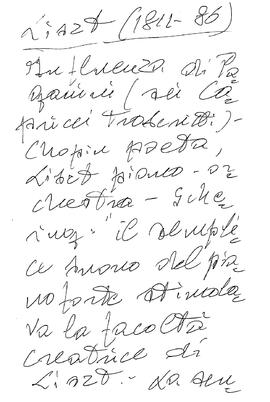 Liszt (1811-86)
Influenza di Pa=
ganini (sei Ca=
pricci trascritti)-
Chopin poeta,
Liszt piano-or=
chestra - Sche
ring: "il sempli=
ce suono del pia=
noforte stimola=
va la facoltà
creatrice di
Liszt.- La sen=